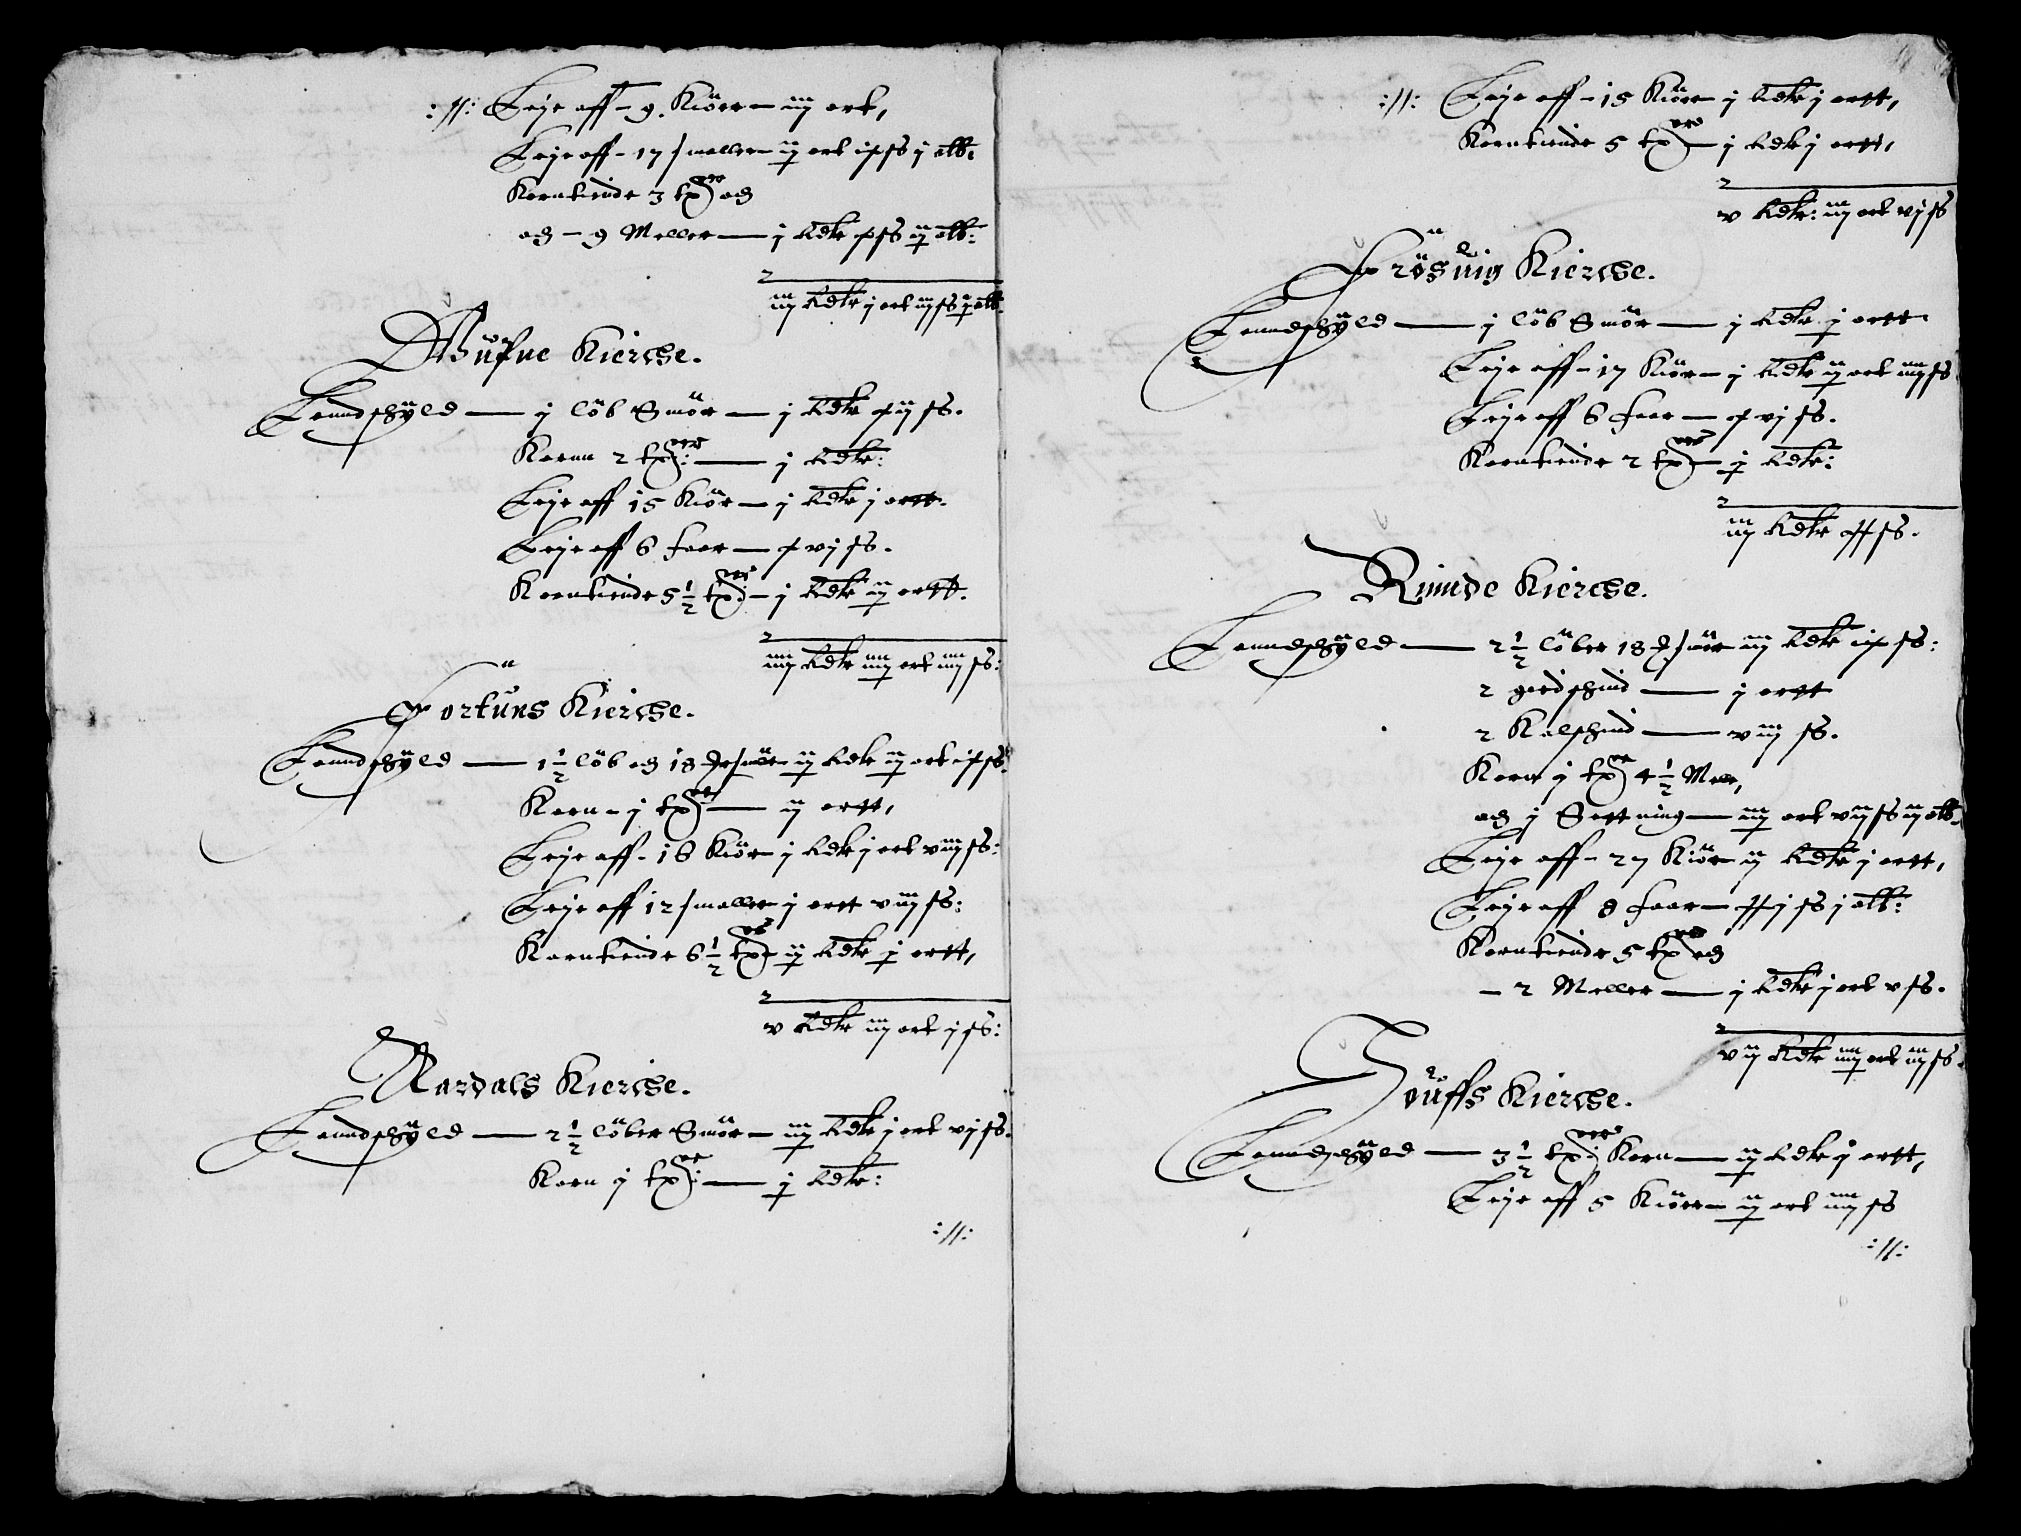 ://: Leje aff - 9. Kiörr — iij ort,
Leje aff - 17 smaller — ij ort ix ß j alb:
Korntiende 3 tp er og
og - 9 Meller — j Rdlr x ß ij alb:
iij Rdlr j ort iij ß j alb.
Wüfne Kierche.
Lanndschÿld — j löb Smör — j Rdlr xij ß.
Kornn 2 tp er: — j Rdlr:
Leje aff 15 Kiör — j Rdlr j ortt.
Leje aff 6 faar — xvj ß.
Korntiende 5 1/2 tp er: — j Rdlr ij ortt.
iiij Rdlr iij ort iiij ß:
Fortüns Kierche.
Lanndschÿld — 1 1/2 löb og 18 smör ij Rdlr ij ort ix ß.
Korn - j tp — ij ortt,
Leje aff - 18 Kiör — j Rdlr j ort viij ß:
Leje aff 12 smaller j ortt viij ß:
Korntiende 6 1/2 tp er ij Rdlr j ortt,
v Rdlr iij ort j ß:
Aardals Kierche.
Lanndschÿld — 2 1/2 löber Smör — iij Rdlr j ort vj ß.
Korn j tp: — j Rdlr:
:://:
:://: Leje aff - 15 Kiörr — j Rdlr j ortt,
Korntiende 5 tp er — j Rdlr j ortt,
v Rdlr: iij ort vj ß
Frösüig Kierche.
Lanndschÿld — j löb Smör — j Rdlr j ortt
Leje aff - 17 Kiör — j Rdlr ij ort iiij ß
Leje aff 6 faar — xvj ß.
Korntiende 2 tp er — j Rdlr:
iij Rdlr xx ß.
Rinnde Kierche.
Lanndschÿld — 2 1/2 löber 18 smör iij Rdlr ix ß:
2 giedschind — j ortt
2 Kalschind — viij ß.
Korn j tp 4 1/2 Mell,
og j Settning — iij ort vij ß ij alb.
Leje aff - 27 Kiör ij Rdlr j ortt,
Leje aff 8 faar — xxj ß j alb:
Korntiende 5 tp er og
- 2 Meller — j Rdlr j ort v ß.
vij Rdlr iij ort iij ß.
Touffs Kierche.
Lanndschÿld — 3 1/2 tp er Korn — ij Rdlr j ortt,
Leje aff 5 Kiörr — ij ort iiij ß
:://: